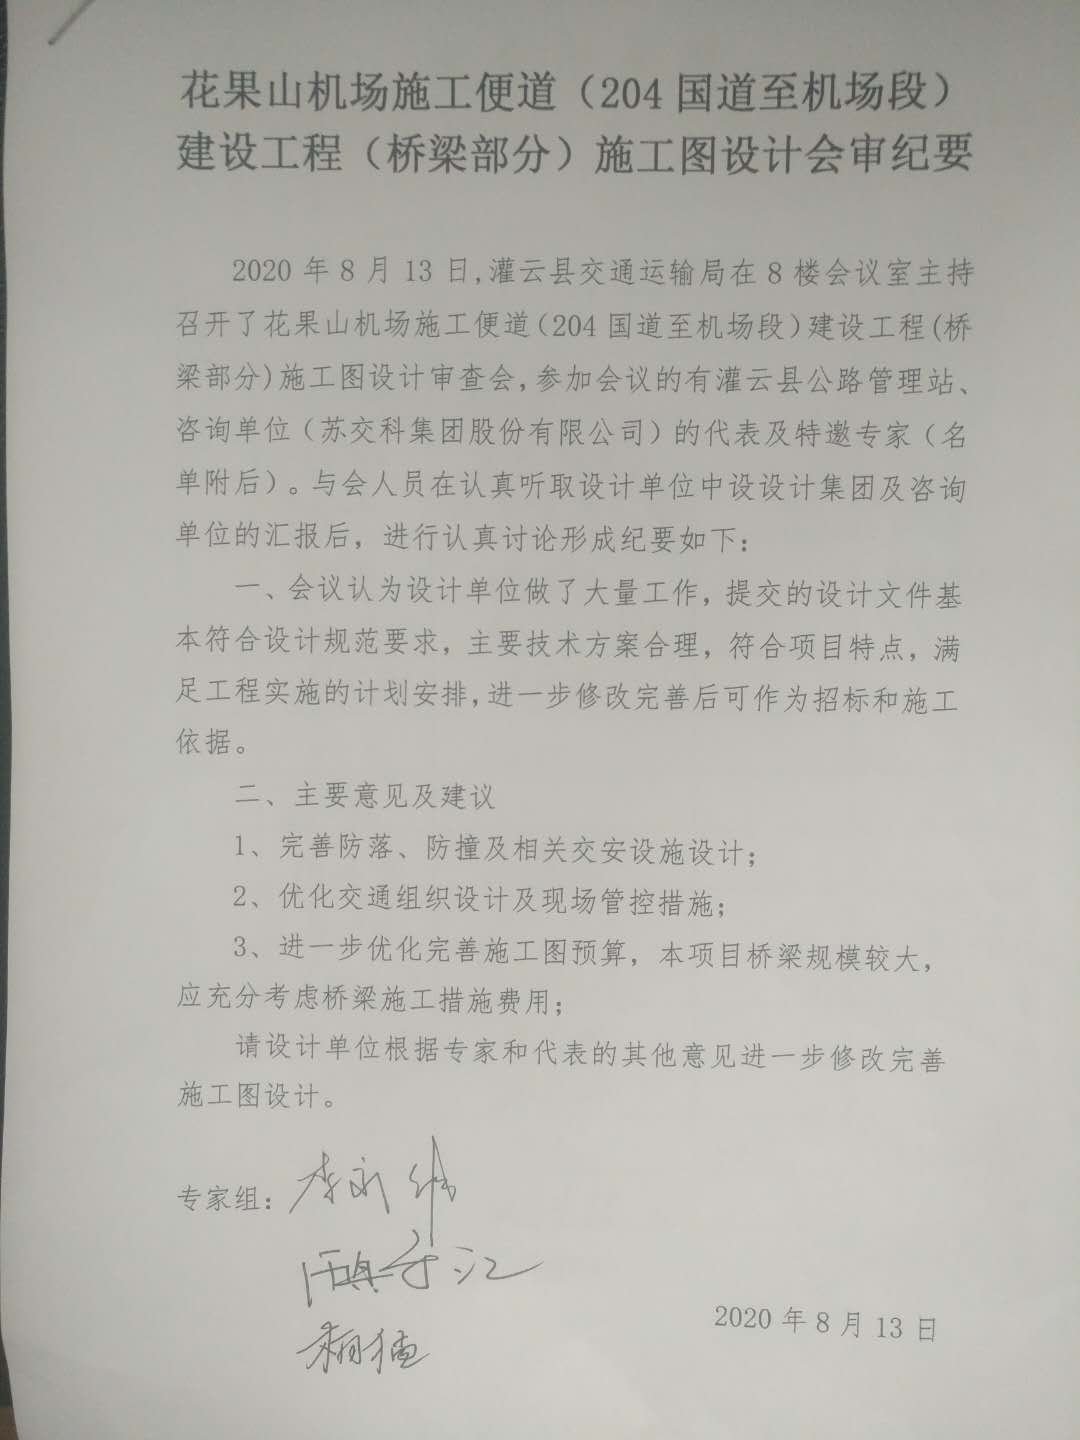 花果山机场施工便道（204国道至机场段）
建设工程（桥梁部分）施工图设计会审纪要
2020年8月13日,灌云县交通运输局在8楼会议室主持
召开了花果山机场施工便道（204国道至机场段）建设工程(桥
梁部分)施工图设计审查会,参加会议的有灌云县公路管理站、
咨询单位（苏交科集团股份有限公司）的代表及特邀专家（名
单附后）。与会人员在认真听取设计单位中设设计集团及咨询
单位的汇报后，进行认真讨论形成纪要如下：
一、会议认为设计单位做了大量工作，提交的设计文件基
本符合设计规范要求，主要技术方案合理，符合项目特点，满
足工程实施的计划安排,进一步修改完善后可作为招标和施工
依据。
二、主要意见及建议
1、完善防落、防撞及相关交安设施设计；
2、优化交通组织设计及现场管控措施；
3、进一步优化完善施工图预算，本项目桥梁规模较大，
应充分考虑桥梁施工措施费用；
请设计单位根据专家和代表的其他意见进一步修改完善
施工图设计。
专家组：
2020年8月13日